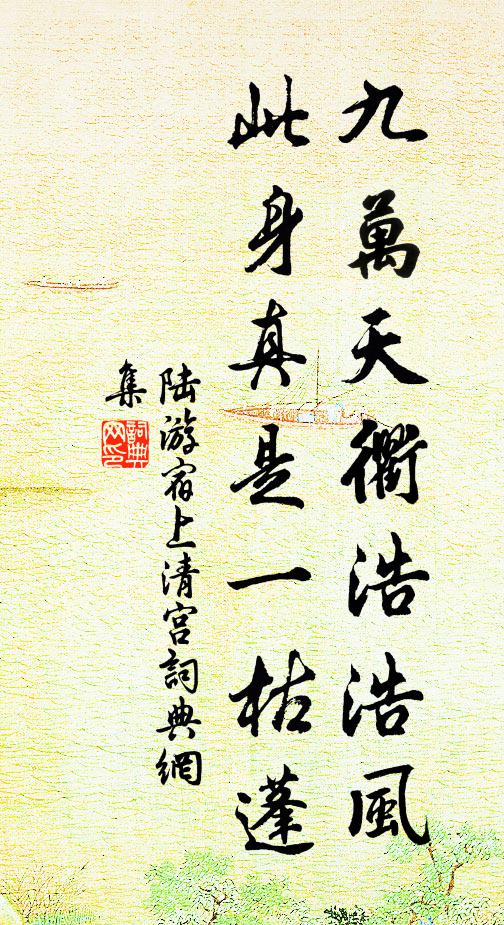 九萬天衢浩浩風
此身真是一枯蓬
陸游宿上清宮詞典網
集
詞典
网印